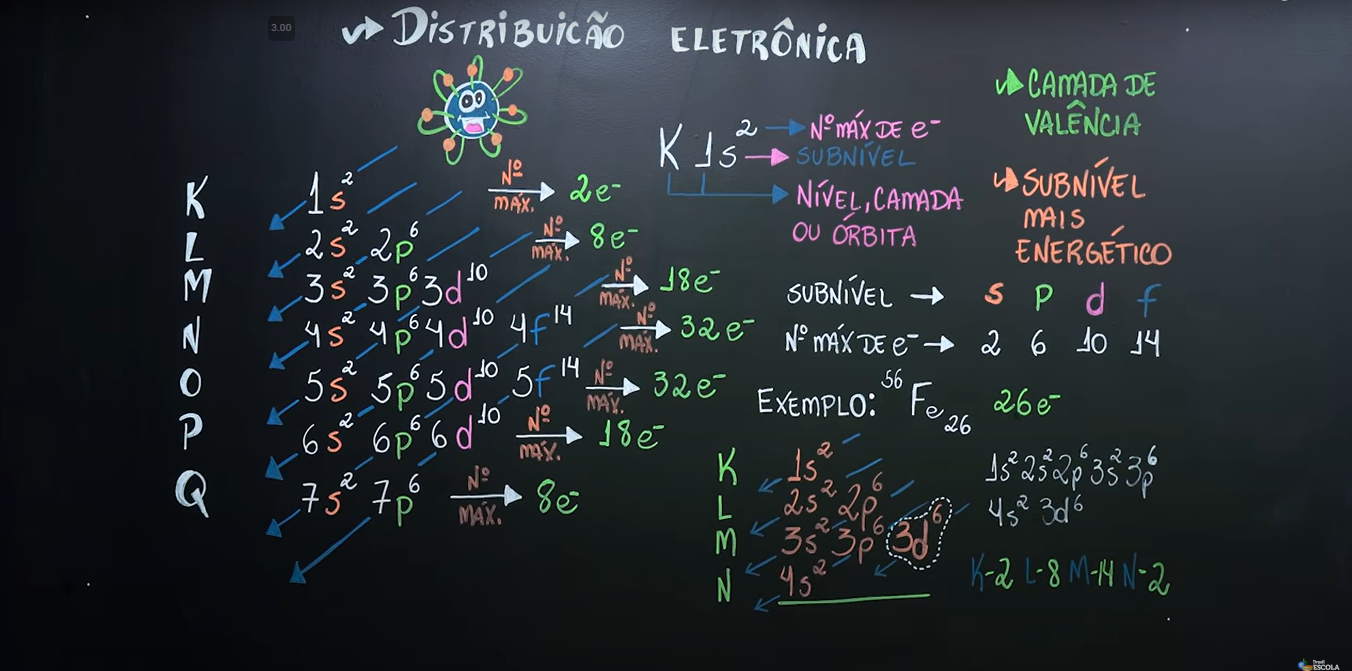 3.00
DISTRIBUICÃO ELETRÔNICA
K 1s² Nº MÁX. 2e⁻
L 2s² 2p⁶ Nº MÁX. 8e⁻
M 3s² 3p⁶ 3d¹⁰ Nº MÁX. 18e⁻
N 4s² 4p⁶ 4d¹⁰ 4f¹⁴ Nº MÁX. 32e⁻
O 5s² 5p⁶ 5d¹⁰ 5f¹⁴ Nº MÁX. 32e⁻
P 6s² 6p⁶ 6d¹⁰ Nº MÁX. 18e⁻
Q 7s² 7p⁶ Nº MÁX. 8e⁻
K 1s² → Nº MÁX DE e⁻
→ SUBNÍVEL
→ NÍVEL, CAMADA
OU ÓRBITA
CAMADA DE
VALÊNCIA
SUBNÍVEL
MAIS
ENERGÉTICO
SUBNÍVEL → s p d f
Nº MÁX DE e⁻ → 2 6 10 14
EXEMPLO: ⁵⁶Fe₂₆ 26e⁻
K 1s²
L 2s² 2p⁶
M 3s² 3p⁶ 3d⁶
N 4s²
1s² 2s² 2p⁶ 3s² 3p⁶
4s² 3d⁶
K-2 L-8 M-14 N-2
Brasil
ESCOLA